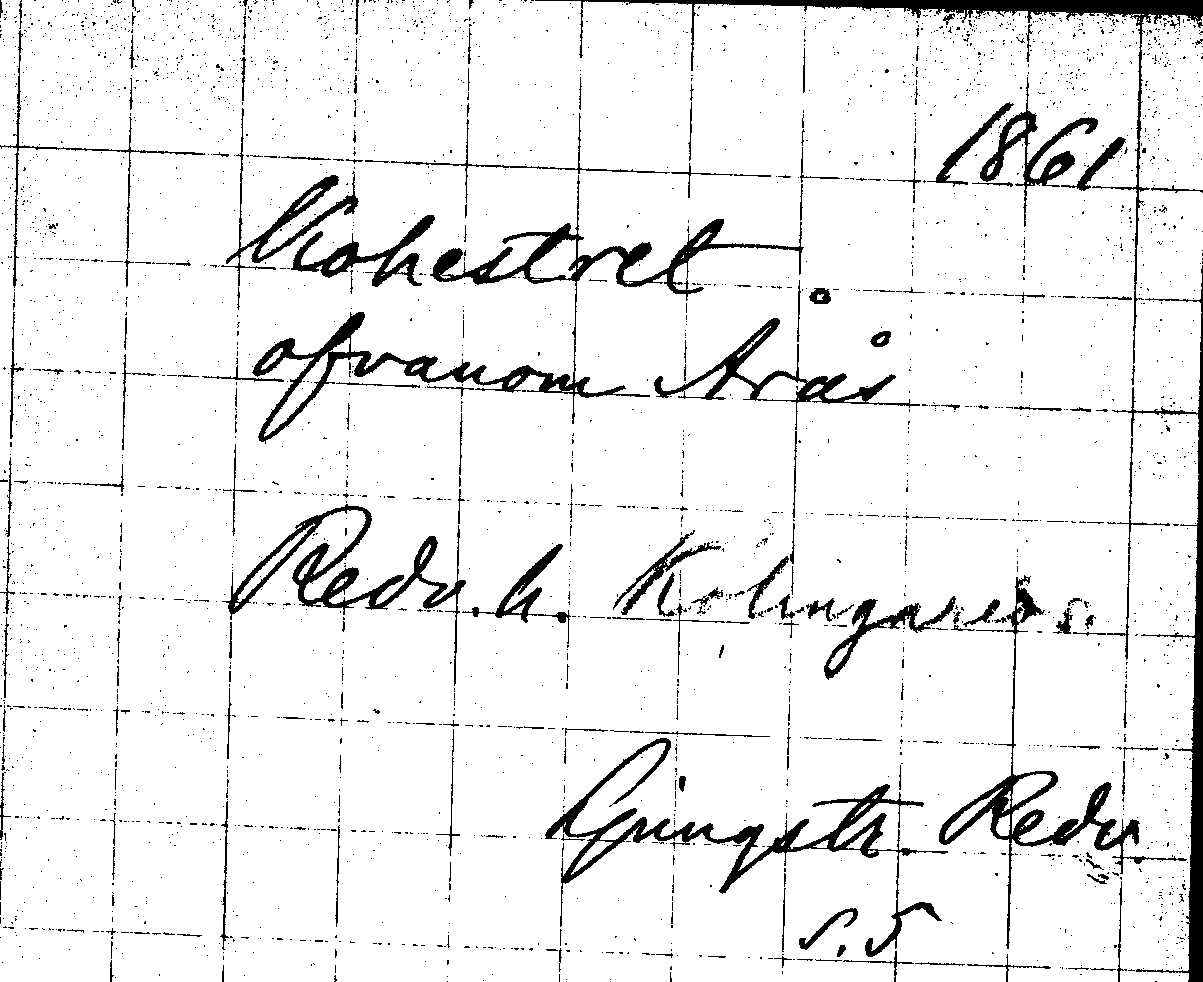 1861
Kohestret
ofvanom Årås
Redv. h. Kölingareds s.
Ljungstr. Redv.
s. 5